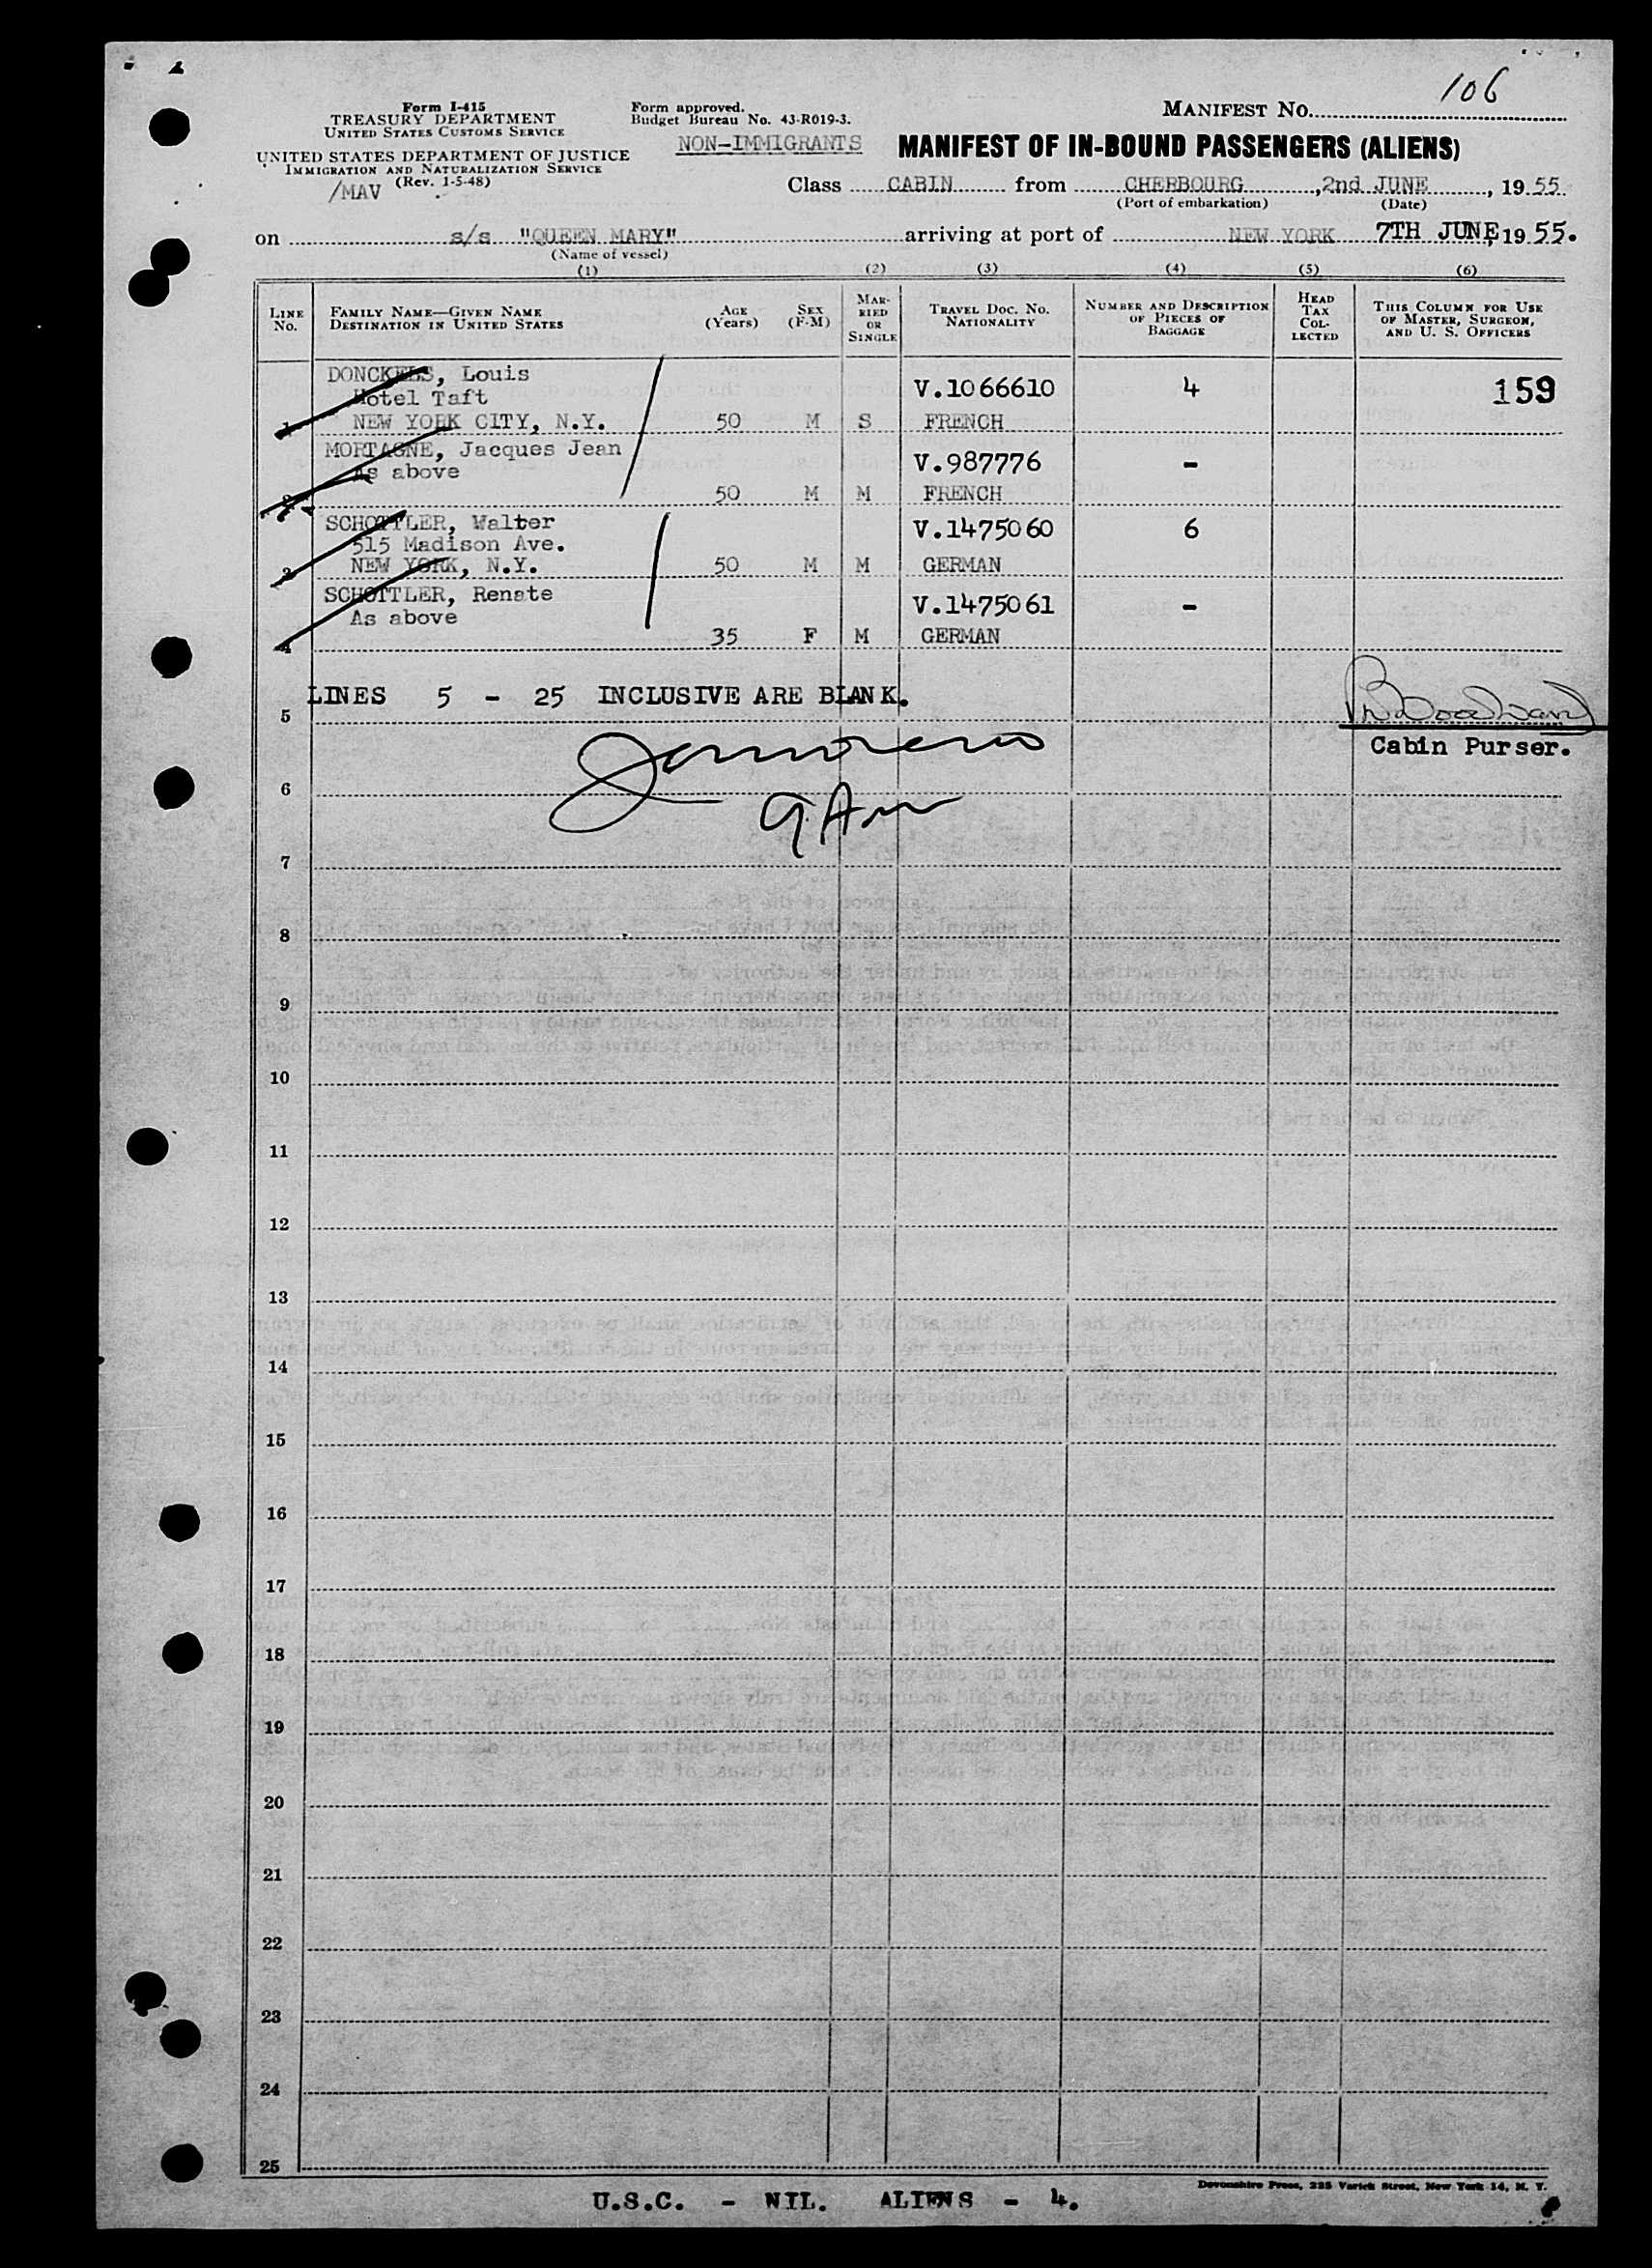 106
Form I-415
TREASURY DEPARTMENT
UNITED STATES CUSTOMS SERVICE
UNITED STATES DEPARTMENT OF JUSTICE
IMMIGRATION AND NATURALIZATION SERVICE
(Rev. 1-5-48)
/MAV
Form approved.
Budget Bureau No. 43-R019-3.
NON-IMMIGRANTS
MANIFEST NO.
MANIFEST OF IN-BOUND PASSENGERS (ALIENS)
Class CABIN from CHERBOURG, 2nd JUNE, 1955
(Port of embarkation) (Date)
on s/s "QUEEN MARY" arriving at port of NEW YORK 7TH JUNE, 1955.
(Name of vessel)
(1) (2) (3) (4) (5) (6)
LINE NO.
FAMILY NAME—GIVEN NAME
DESTINATION IN UNITED STATES
AGE (Years)
SEX (F-M)
MARRIED OR SINGLE
TRAVEL DOC. NO.
NATIONALITY
NUMBER AND DESCRIPTION OF PIECES OF BAGGAGE
HEAD TAX COLLECTED
THIS COLUMN FOR USE OF MASTER, SURGEON, AND U. S. OFFICERS
DONCKELS, Louis
Hotel Taft V.1066610 4 159
1 NEW YORK CITY, N.Y. 50 M S FRENCH
MORTAGNE, Jacques Jean
As above V.987776 -
2 50 M M FRENCH
SCHOTTLER, Walter V.1475060 6
515 Madison Ave.
3 NEW YORK, N.Y. 50 M M GERMAN
SCHOTTLER, Renate
As above V.1475061 -
4 35 F M GERMAN
LINES 5 - 25 INCLUSIVE ARE BLANK.
5
Cabin Purser.
6
7
8
9
10
11
12
13
14
15
16
17
18
19
20
21
22
23
24
25
Devonshire Press, 225 Varick Street, New York 14, N. Y.
U.S.C. - NIL. ALIENS - 4.